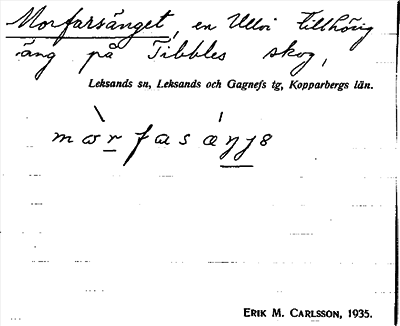 Morfarsänget, en Ulvi tillhörig
äng på Tibbles skog,
Leksands sn, Leksands och Gagnefs tg, Kopparbergs län.
ERIK M. CARLSSON, 1935.